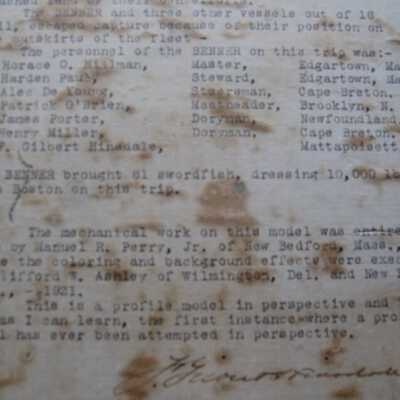 The BENNER and three other vessels out of 16
escaped capture because of their position on
outskirts of the fleet
The personnel of the BENNER on this trip was:-
Horace O. Hillman, Master, Edgartown, Ma
Harden Paul, Steward, Edgartown, Ma
Alec De Young, Steersman, Cape Breton.
Patrick O'Brien, Mastheader, Brooklyn, N.
James Porter, Doryman, Newfoundland
Henry Miller, Doryman, Cape Breton.
F. Gilbert Hinsdale, Mattapoisett
BENNER brought 81 swordfish, dressing 10,000 lb
Boston on this trip.
The mechanical work on this model was entire
by Manuel R. Perry, Jr. of New Bedford, Mass.,
the coloring and background effects were exec
lifford W. Ashley of Wilmington, Del. and New
1921.
This is a profile model in perspective and
as I can learn, the first instance where a pro
l has ever been attempted in perspective.